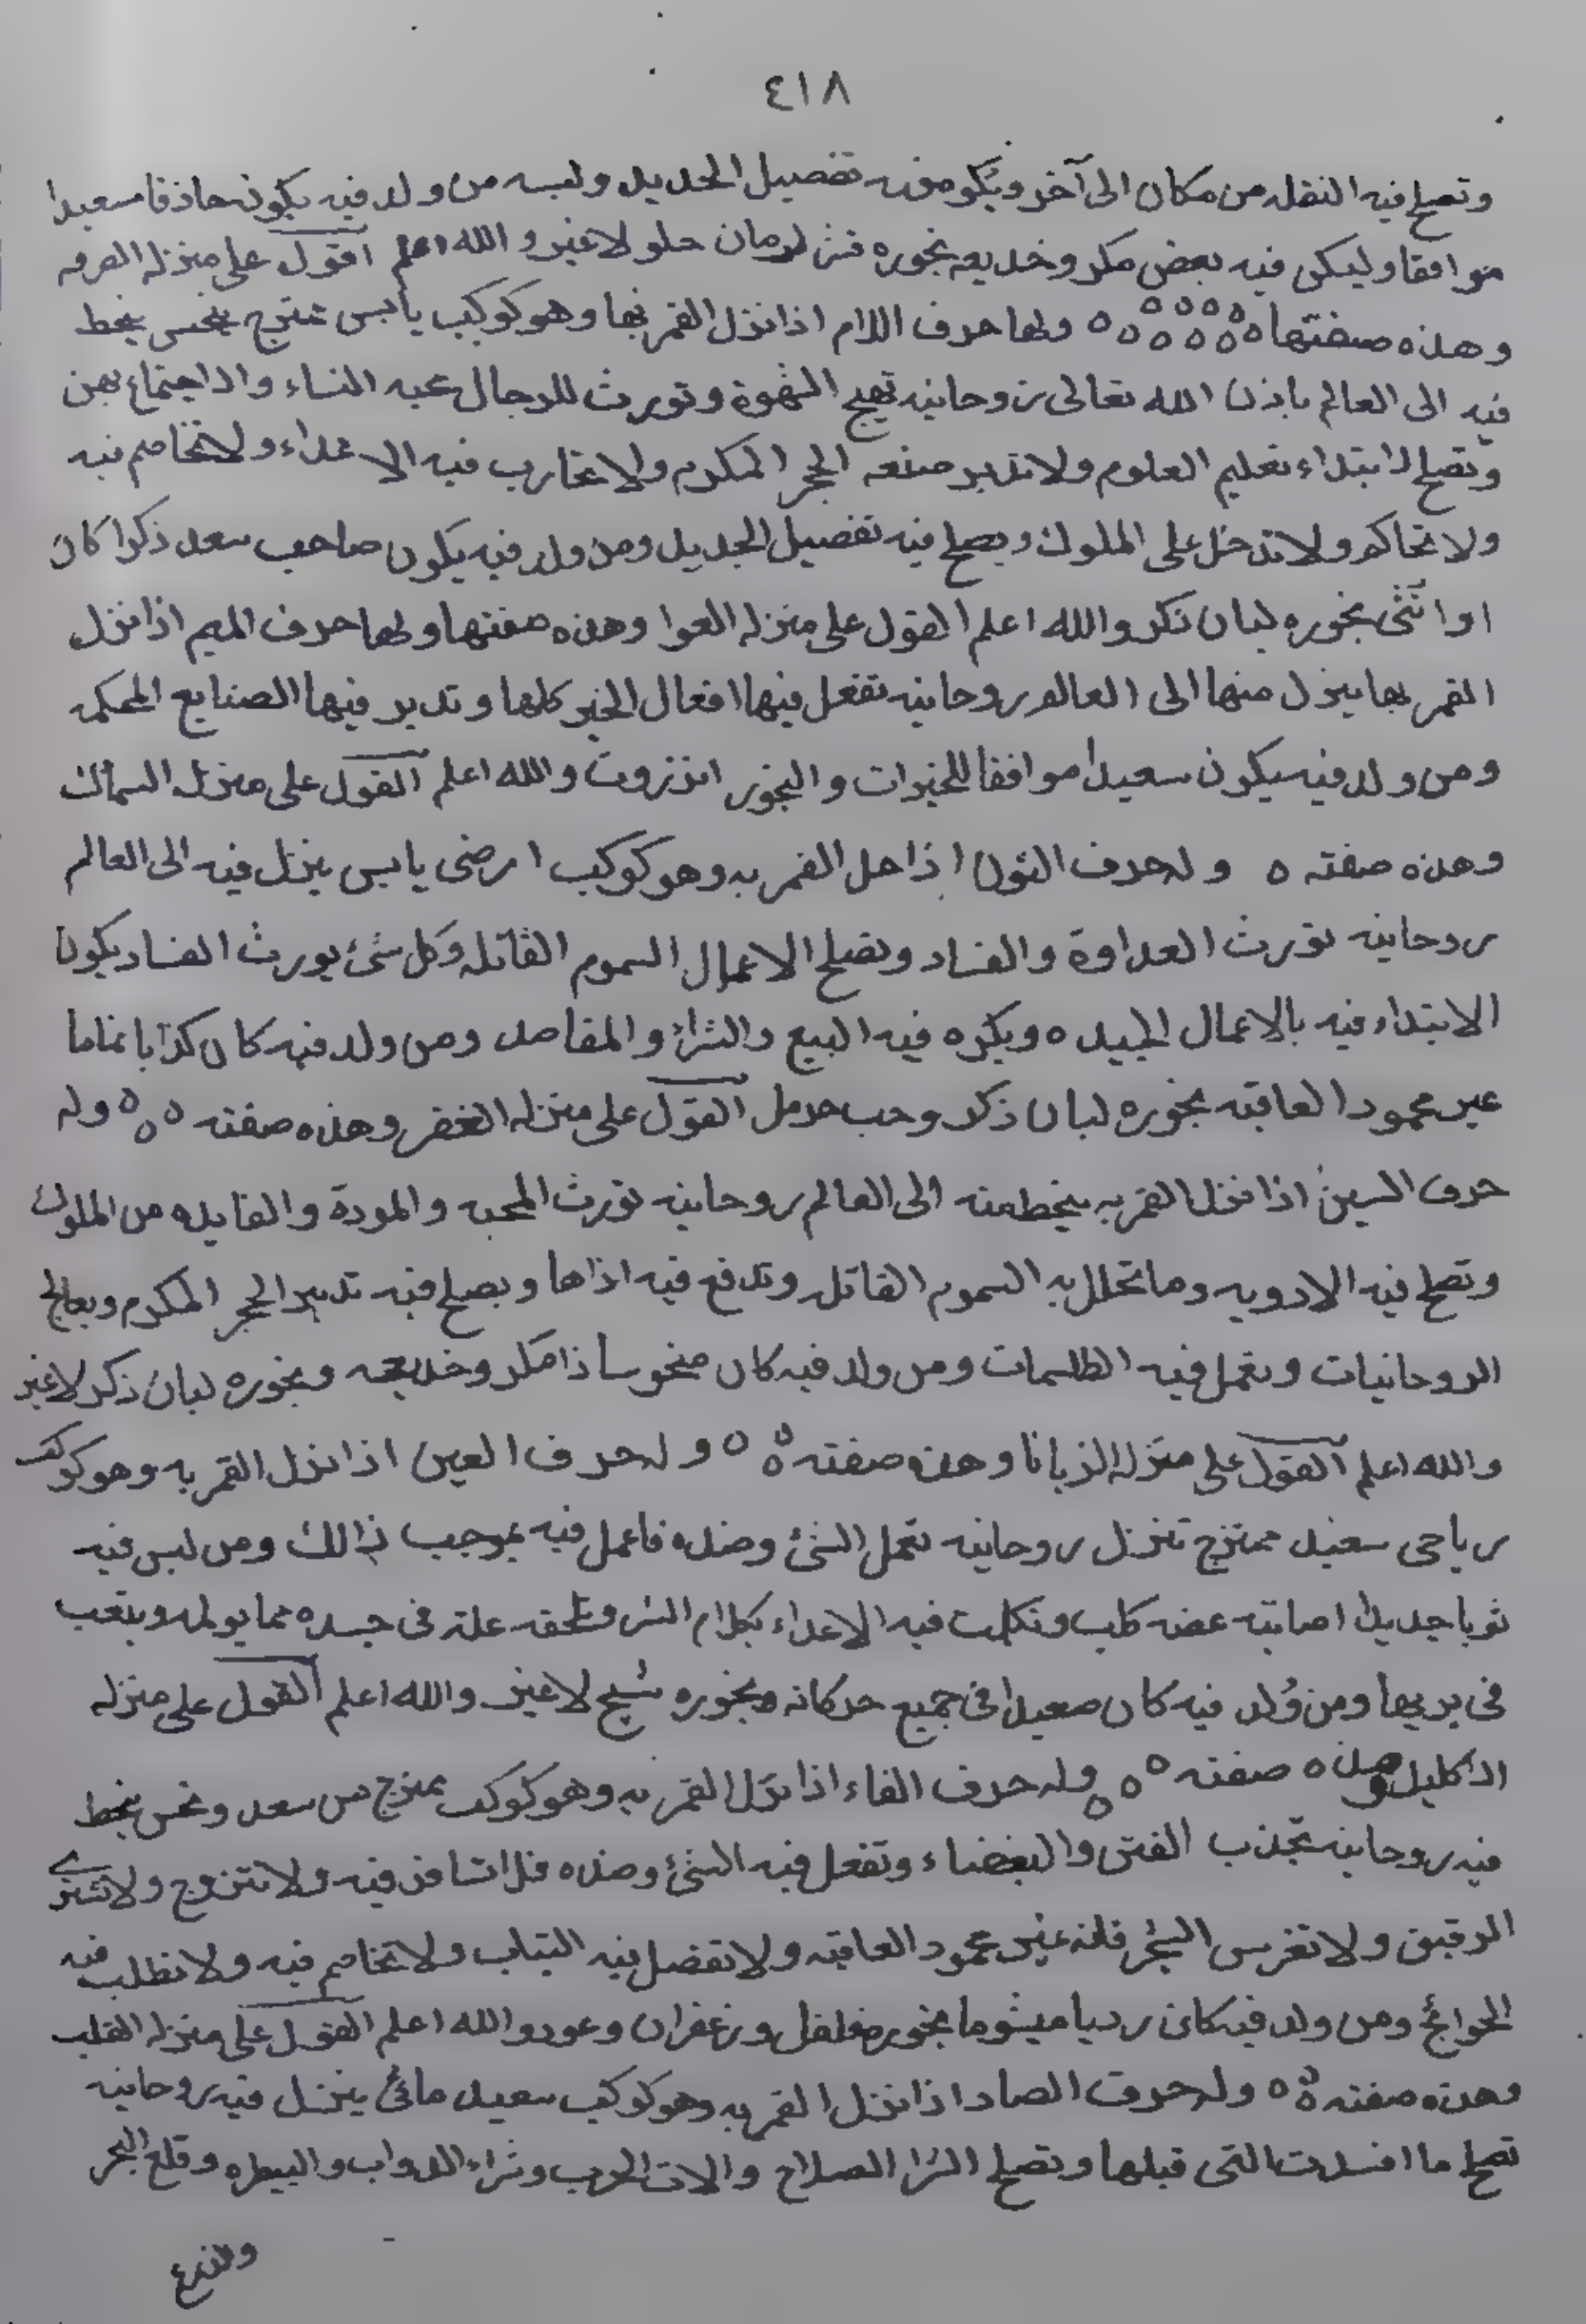 ٤١٨
وتصلح فيه النقله من مكان الى آخر ويكره فيه تفصيل الجديد ولبسه من ولد فيه يكون حاذقا سعيدا
موافقا وليكن فيه بعض مكر وخديعه بخوره قشر لرمان حلو لا غير والله اعلم اقول على منزله الصرفه
وهذه صفتها ولها حرف اللام اذا نزل القمر بها وهو كوكب يابس ممتزج بنحس ينحط
فيه الى العالم باذن الله تعالى روحانيه تهيج الشهوة وتورث للرجال محبه النساء والاجتماع بهن
وتصلح لابتداء تعليم العلوم ولا تدبر صنعه الحجر المكرم ولا تحارب فيه الاعداء ولا تخاصم فيه
ولا تحاكم ولا تدخل على الملوك ويصلح فيه تفصيل الجديد ومن ولد فيه يكون صاحب سعد ذكرا كان
او انثى بخوره لبان ذكر والله اعلم القول على منزله العوا وهذه صفتها ولها حرف الميم اذا نزل
القمر بها ينزل منها الى العالم روحانيه تفعل فيها افعال الخير كلها وتدبر فيها الصنايع المحكمه
ومن ولد فيه سيكون سعيدا موافقا للخيرات والبخور انزروت والله اعلم القول على منزله السماك
وهذه صفته ه وله حرف النون اذا حل القمر به وهو كوكب ارضى يابس ينزل فيه الى العالم
روحانيه تورث العداوة والفساد وتصلح الاعمال السموم القاتله وكل شئ يورث الفساد يكون
الابتداء فيه بالاعمال الجيده ويكره فيه البيع والشراء والمقاصد ومن ولد فيه كان كذابا نماما
غير محمود العاقبه بخوره لبان ذكر وحب حرمل القول على منزله الغفر وهذه صفته ه ه ه وله
حرف السين اذا نزل القمر به ينحط منه الى العالم روحانيه تورث المحبه والمودة والقابله من الملوك
وتصلح فيه الادويه وما تحلل به السموم القاتله وتدفع فيه اذاها ويصلح فيه تدبير الحجر المكرم ويعالج
الروحانيات وتعمل فيه الطلسمات ومن ولد فيه كان منحوسا ذا مكر وخديعه وبخوره لبان ذكر لا غير
والله اعلم القول على منزله الزبانا وهذه صفته ه ه ه وله حرف العين اذا نزل القمر به وهو كوكب
رياحى سعيد ممتزج تنزل روحانيه تعمل الشئ وضده فاعمل فيه بموجب ذالك ومن لبس فيه
ثوبا جديدا اصابته عضه كلب وتكلمت فيه الاعداء بكلام الشر وتلحقه علة فى جسده مما يولمه ويتعب
فى بريها ومن وُلد فيه كان صعيدا فى جميع حركاته وبخوره شيح لا غير والله اعلم القول على منزله
الاكليل وهذه صفته ه ه ه وله حرف الفاء اذا نزل القمر به وهو كوكب ممتزج من سعد ونحس ينحط
فيه روحانيه تجذب الفتن والبغضاء وتفعل فيه الشئ وضده فلا تسافر فيه ولا تتزوج ولا تشترى
الرقيق ولا تغرس الشجر فانه غير محمود العاقبه ولا تفصل فيه الثياب ولا تخاصم فيه ولا تطلب فيه
الحوائج ومن ولد فيه كان رديا ميشوما بخوره فلفل وزعفران وعود والله اعلم القول على منزله القلب
وهذه صفته ه ه ه وله حرف الصاد اذا نزل القمر به وهو كوكب سعيد مائى ينزل فيه روحانيه
تصلح ما افسدت التى قبلها وتصلح الشرا الصلاح والات الحرب وشراء الدواب والبيطره وقلع الشجر
والزرع